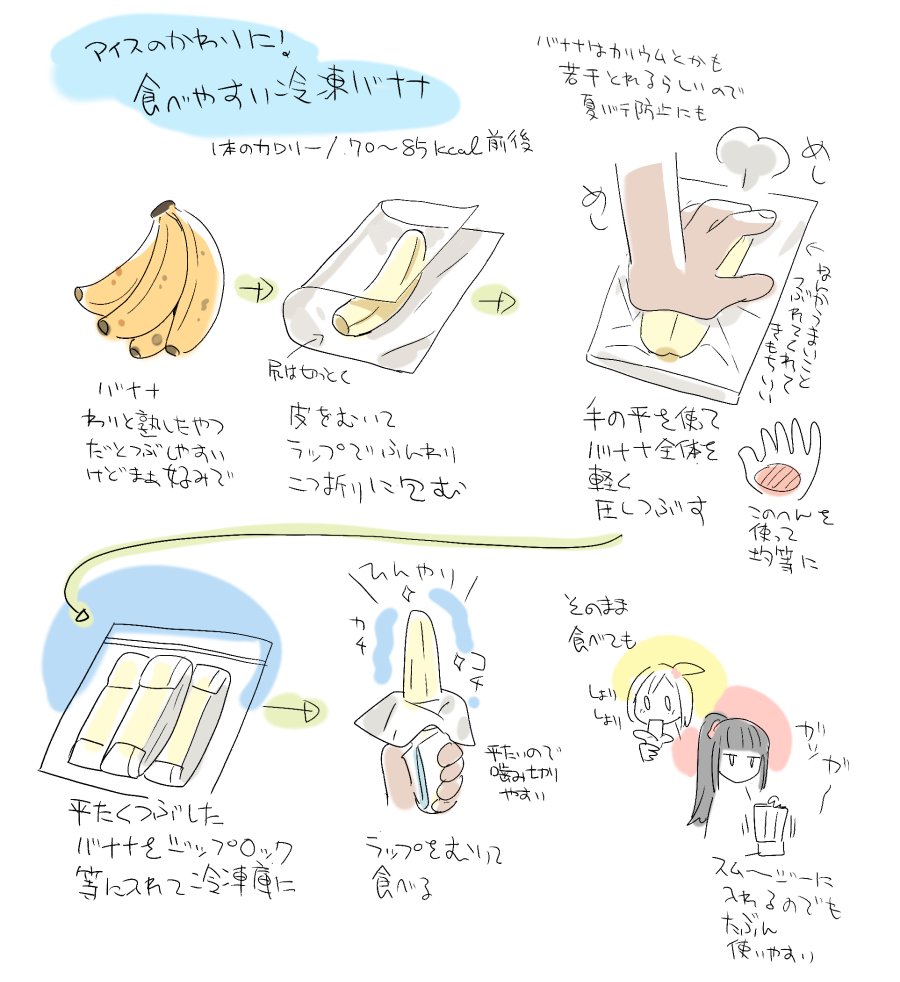 アイスのかわりに!
食べやすい冷凍バナナ
1本のカロリー/.70〜85kcal前後
バナナはカリウムとかも
若干とれるらしいので
夏バテ防止にも
バナナ
わりと熟したやつ
だとつぶしやすい
けどまぁ好みで
尻は切っとく
皮をむいて
ラップでふんわり
二つ折りに包む
めし
めし
←なんかうまいこと
つぶれてくれて
きもちいい
手の平を使って
バナナ全体を
軽く
圧しつぶす
このへんを
使って
均等に
平たくつぶした
バナナをジップロック
等に入れて冷凍庫に
ひんやり
カチ
コチ
平たいので
噛みちぎり
やすい
ラップをむいて
食べる
そのまま
食べても
しょり
しょり
ガッ
ガ
スムージーに
入れるのでも
たぶん
使いやすい